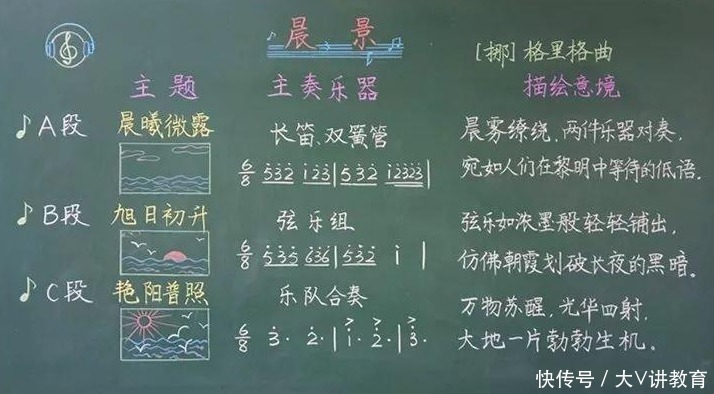 晨景
[挪]格里格曲
主题 主奏乐器 描绘意境
A段 晨曦微露 长笛、双簧管 晨雾缭绕,两件乐器对奏,
6/8 532 123|532 12323| 宛如人们在黎明中等待的低语。
B段 旭日初升 弦乐组 弦乐如浓墨般轻轻铺出,
6/8 535 636|535 1 | 仿佛朝霞划破长夜的黑暗。
C段 艳阳普照 乐队合奏 万物苏醒,光华四射,
6/8 3· 2·|1· 2·|3· 大地一片勃勃生机。
快传号/大V讲教育